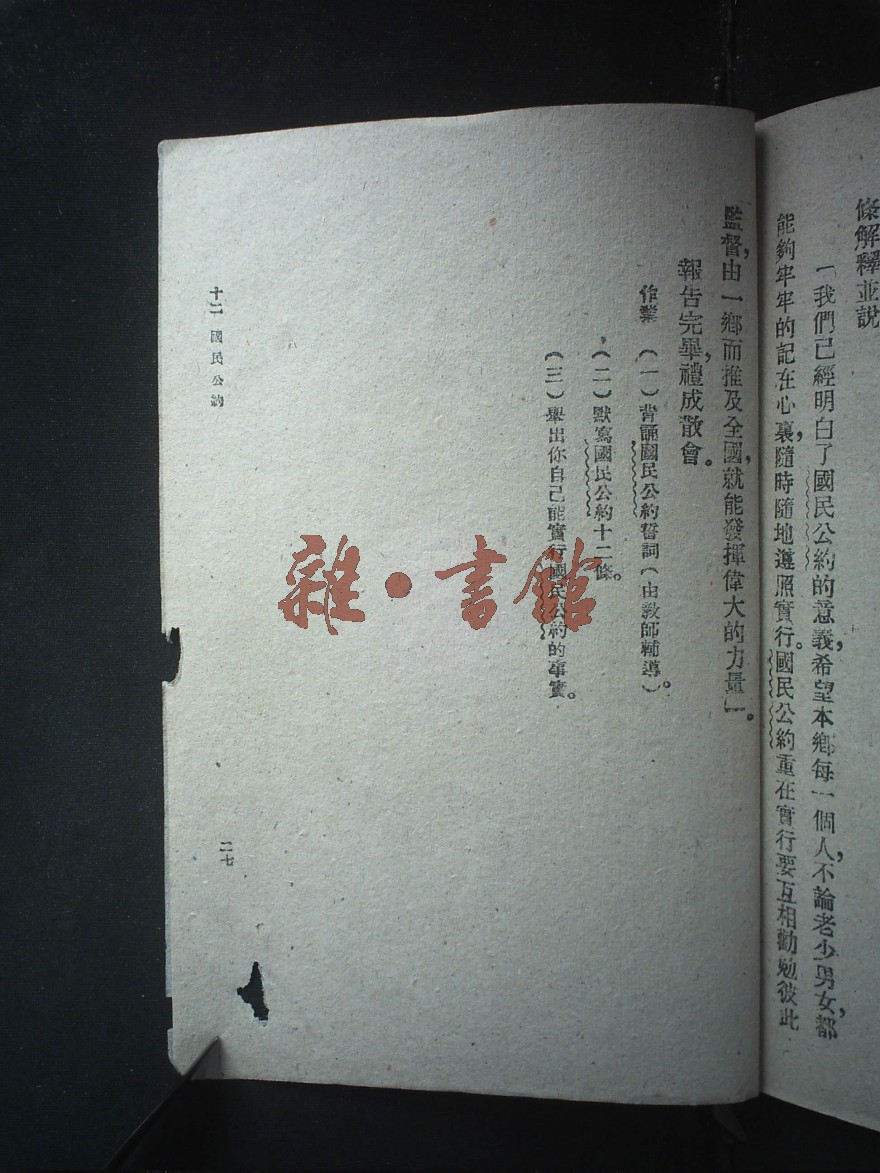 條解釋並說
「我們已經明白了國民公約的意義,希望本鄉每一個人,不論老少男女,都
能夠牢牢的記在心裏,隨時隨地遵照實行。國民公約重在實行,要互相勸勉,彼此
監督,由一鄉而推及全國,就能發揮偉大的力量」。
報告完畢,禮成散會。
作業 (一)背誦國民公約誓詞(由教師輔導)。
(二)默寫國民公約十二條。
(三)舉出你自己能實行國民公約的事實。
十二 國民公約
二七
雜·書館